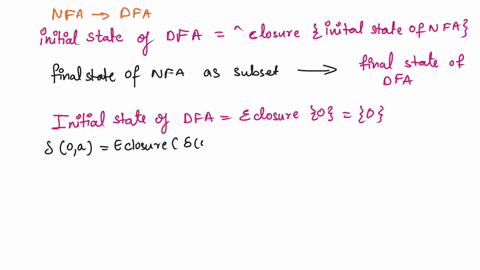 NFA → DFA
initial state of DFA = ^ closure {inital state of NFA}
final state of NFA as subset → final state of DFA
Initial state of DFA = Eclosure {0} = {0}
δ(0,a) = Eclosure( δ(